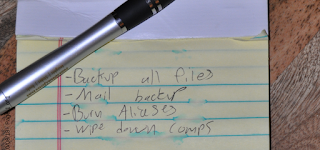 -Backup all files
-Mail backup
-Burn Aliases
-Wipe down comps